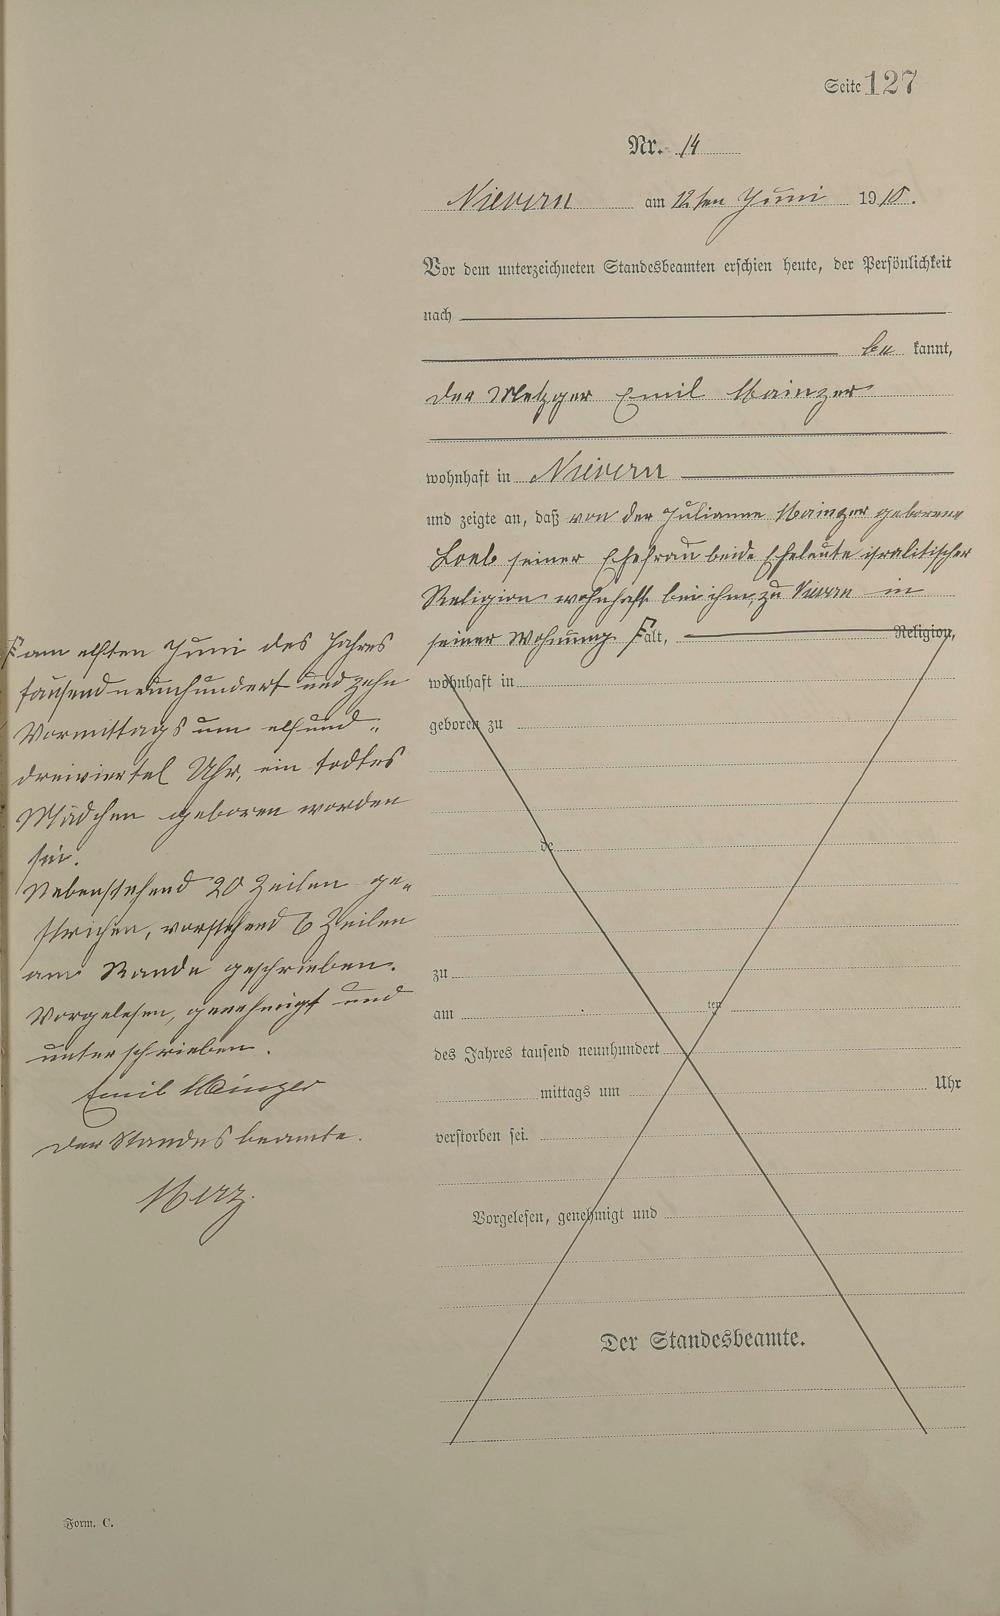 Seite 127
Nr. 14
Nievern am 12ten Juni 1910.
Vor dem unterzeichneten Standesbeamten erschien heute, der Persönlichkeit
nach
be kannt,
der Metzger Emil Mainzer
wohnhaft in Nievern
und zeigte an, daß von der Julianne Mainzer geborene
Loeb seiner Ehefrau beide Eheleute isralitischer
Religion wohnhaft bei ihm, zu Nievern in
seiner Wohnung. F alt, Religion,
F am elften Juni des Jahres
tausendneunhundert und zehn
Vormittags um elfund„
dreiviertel Uhr, ein todtes
Mädchen geboren worden
sei.
Nebenstehend 20 Zeilen ge„
strichen, vorstehend 6 Zeilen
am Rande geschrieben.
Vorgelesen, genehmigt und
unterschrieben.
Emil Mainzer
Der Standesbeamte.
Merz.
wohnhaft in
geboren zu
de
zu
am ten
des Jahres tausend neunhundert
mittags um Uhr
verstorben sei.
Vorgelesen, genehmigt und
Der Standesbeamte.
Form. C.